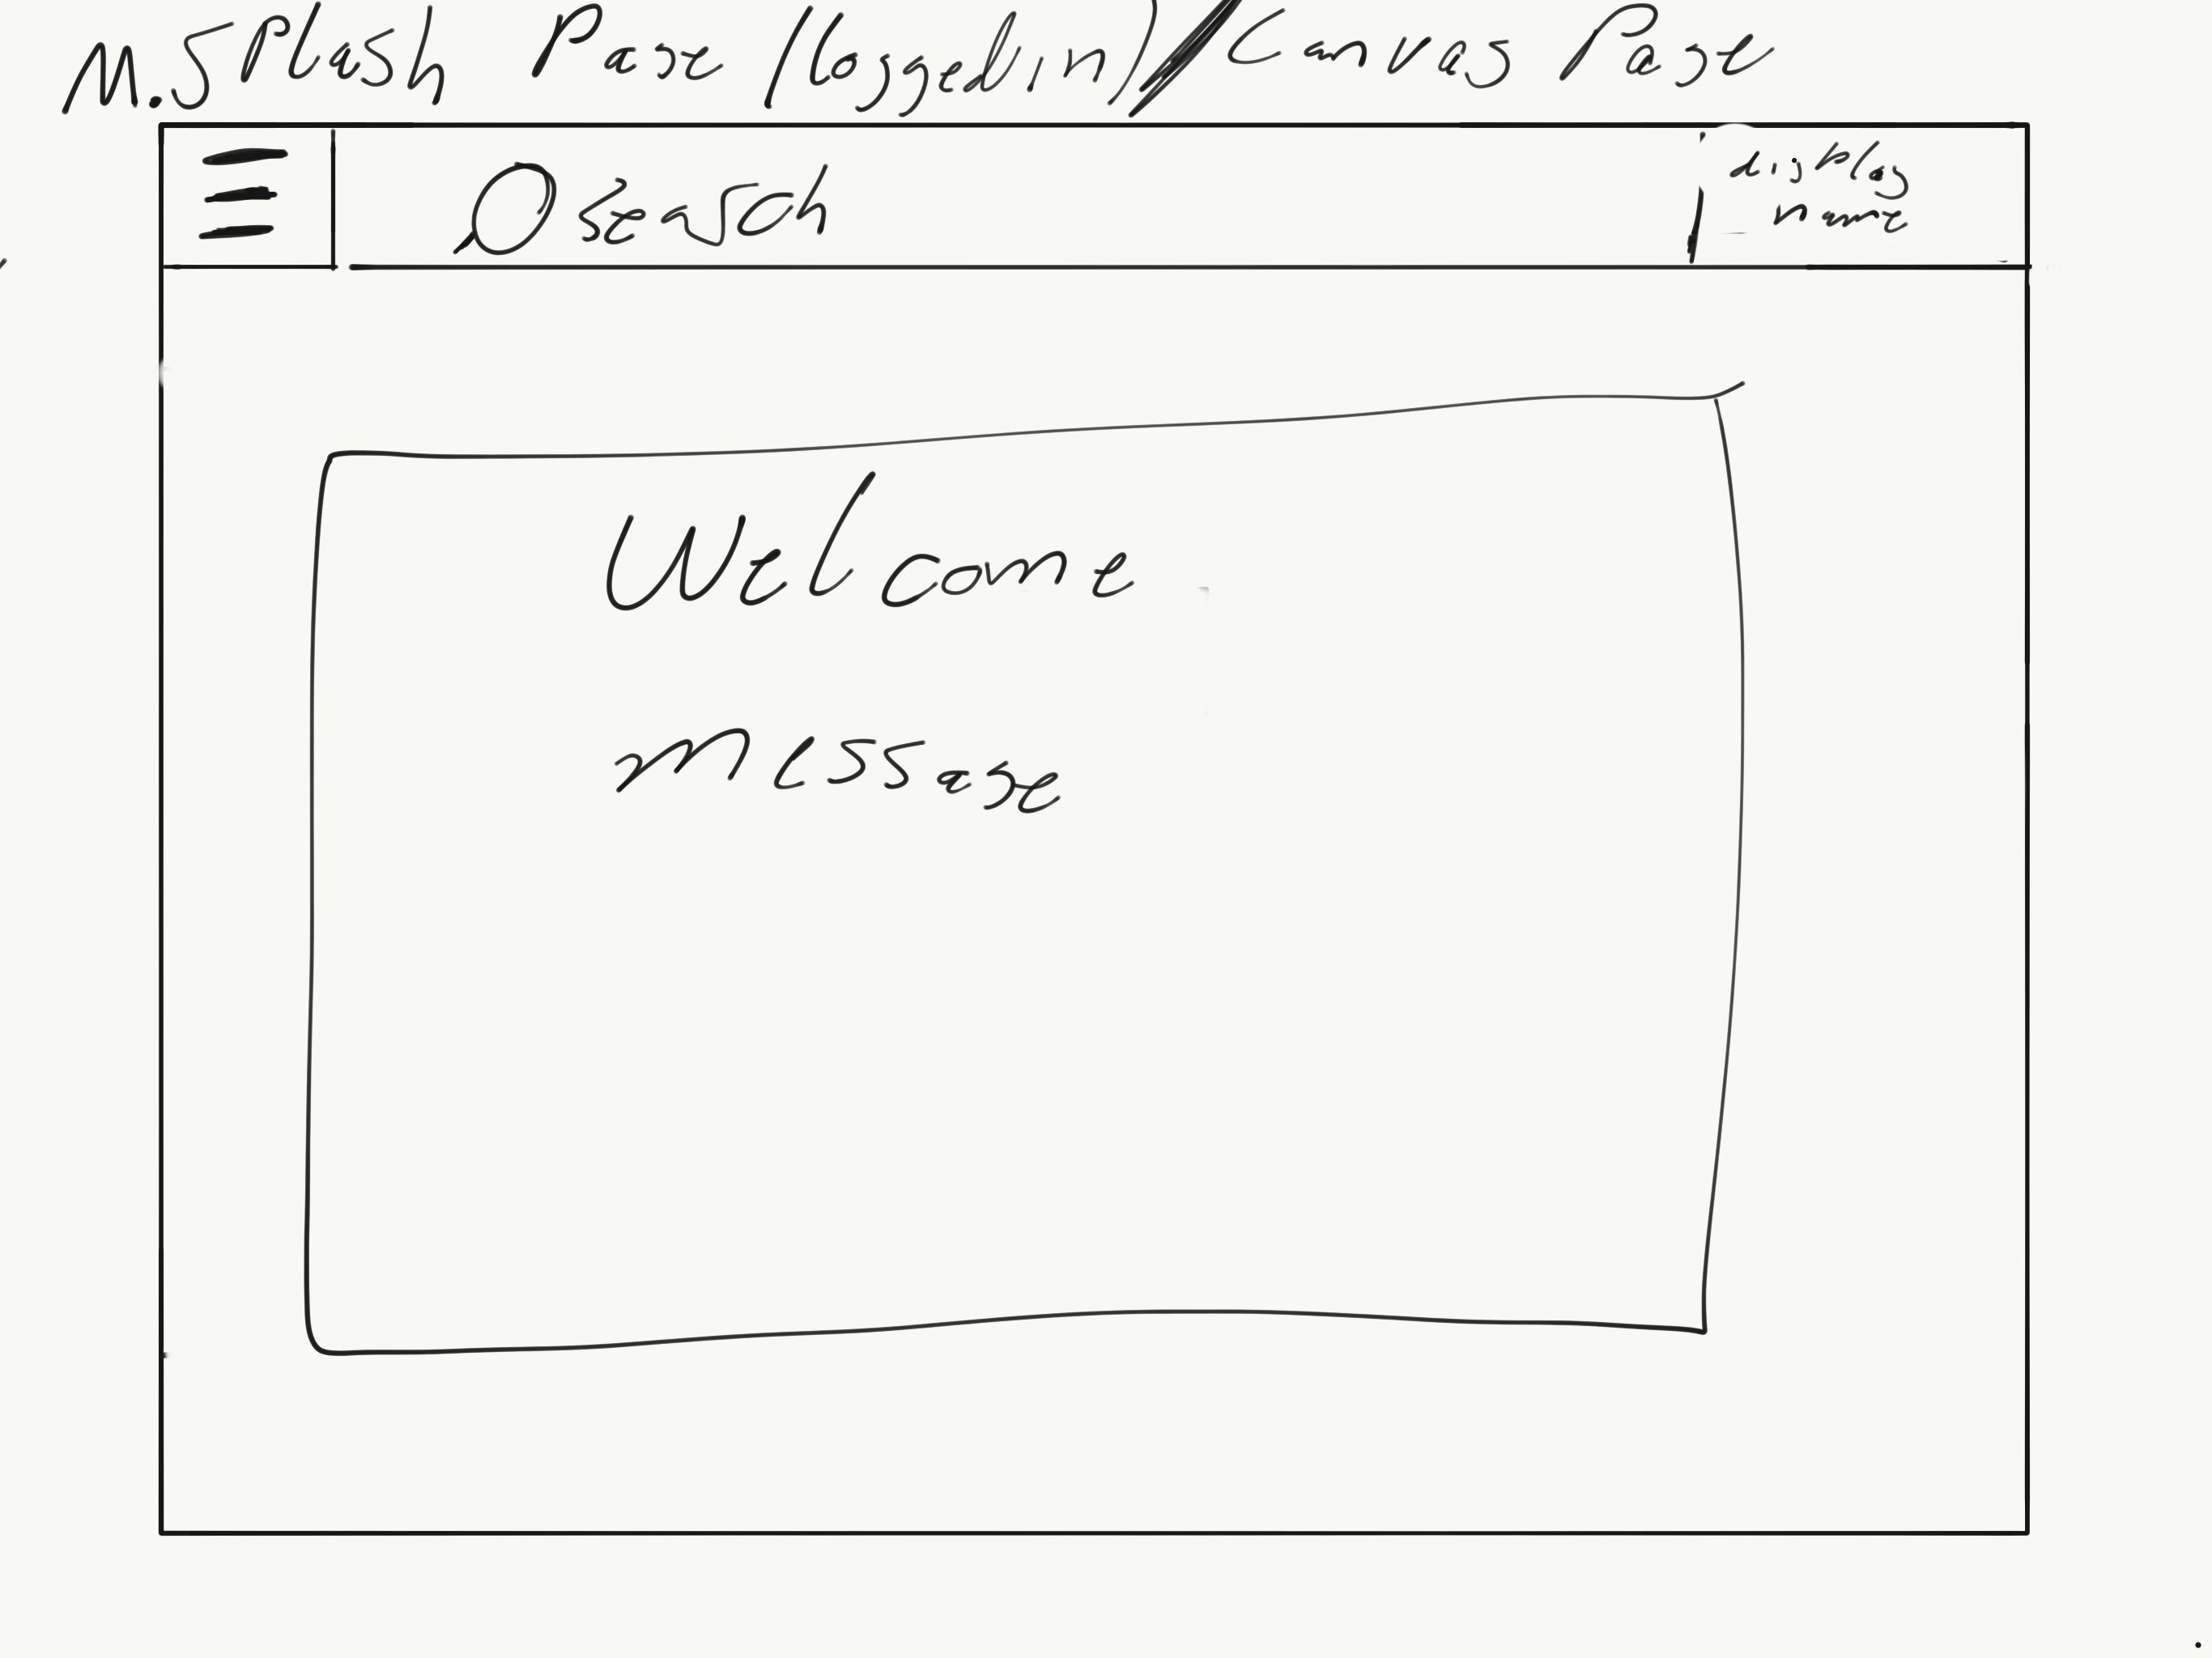 N. Splash Page (logged in) / Canvas Page
search
display
name
Welcome
message